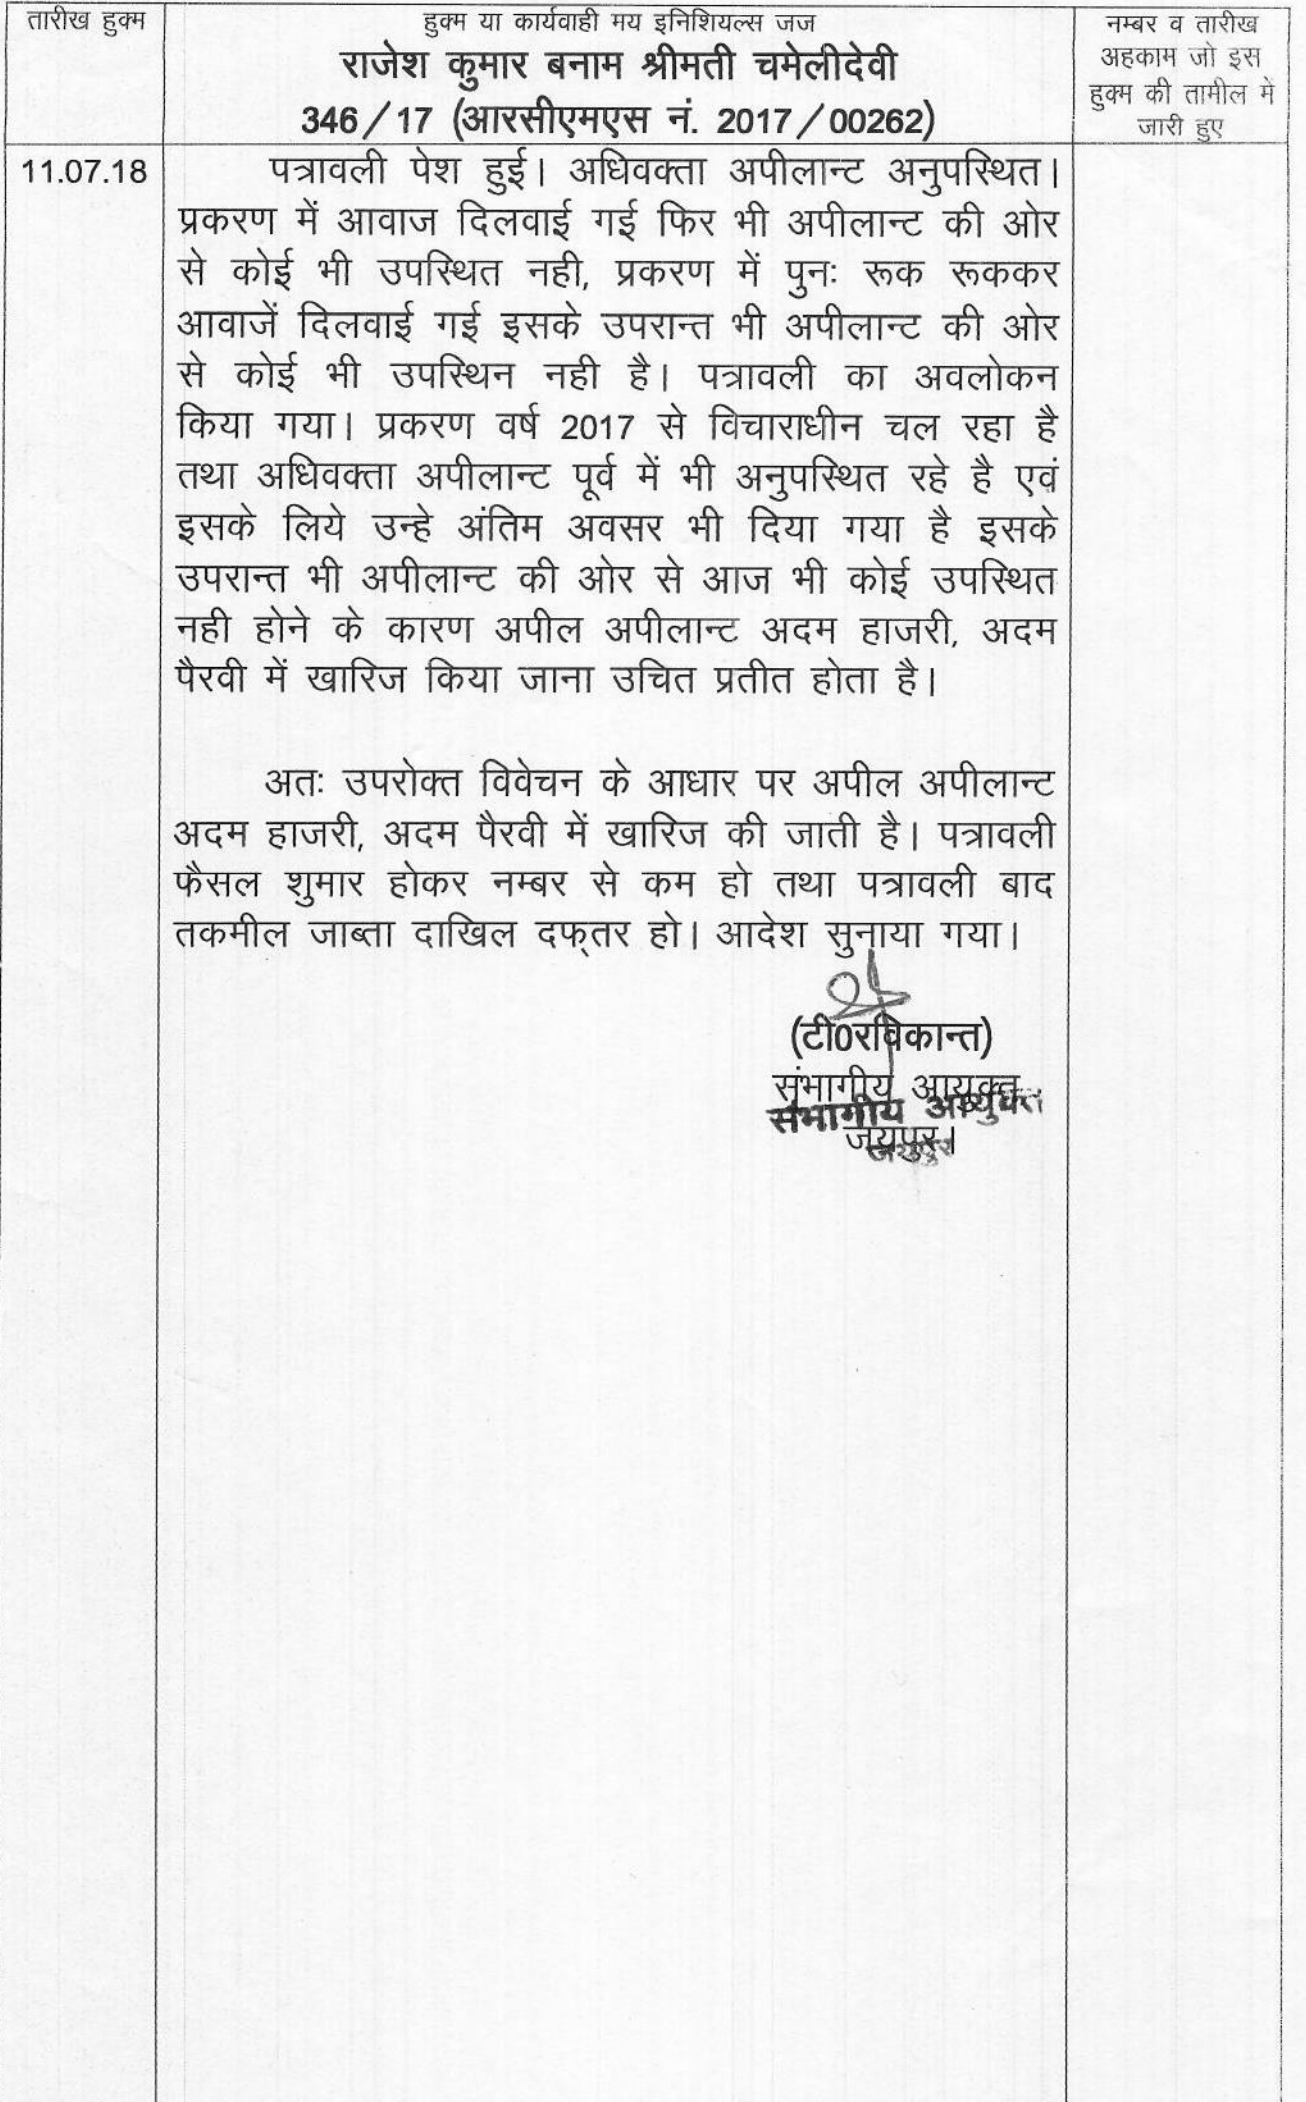 तारीख हुक्म
हुक्म या कार्यवाही मय इनिशियल्स जज
राजेश कुमार बनाम श्रीमती चमेलीदेवी
346/17 (आरसीएमएस नं. 2017/00262)
नम्बर व तारीख
अहकाम जो इस
हुक्म की तामील में
जारी हुए
11.07.18
पत्रावली पेश हुई। अधिवक्ता अपीलान्ट अनुपस्थित।
प्रकरण में आवाज दिलवाई गई फिर भी अपीलान्ट की ओर
से कोई भी उपस्थित नही, प्रकरण में पुनः रूक रूककर
आवाजें दिलवाई गई इसके उपरान्त भी अपीलान्ट की ओर
से कोई भी उपस्थिन नही है। पत्रावली का अवलोकन
किया गया। प्रकरण वर्ष 2017 से विचाराधीन चल रहा है
तथा अधिवक्ता अपीलान्ट पूर्व में भी अनुपस्थित रहे है एवं
इसके लिये उन्हे अंतिम अवसर भी दिया गया है इसके
उपरान्त भी अपीलान्ट की ओर से आज भी कोई उपस्थित
नही होने के कारण अपील अपीलान्ट अदम हाजरी, अदम
पैरवी में खारिज किया जाना उचित प्रतीत होता है।
अतः उपरोक्त विवेचन के आधार पर अपील अपीलान्ट
अदम हाजरी, अदम पैरवी में खारिज की जाती है। पत्रावली
फैसल शुमार होकर नम्बर से कम हो तथा पत्रावली बाद
तकमील जाब्ता दाखिल दफ्तर हो। आदेश सुनाया गया।
(टी0रविकान्त)
संभागीय आयुक्त
संभागीय आयुक्त
जयपुर।
जयपुर